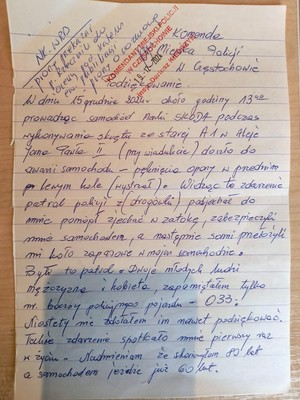 KOMENDANT MIEJSKI POLICJI
W CZĘSTOCHOWIE
Komenda
Miejska Policji
w Częstochowie
Podziękowanie.
W dniu 15 grudnia 2024. około godziny 13
prowadząc samochód Marki SKODA podczas
wykonywania skrętu ze starej A1 w Aleje
Jana Pawła II (przy wiadukcie) doszło do
awarii samochodu - pęknięcia opony w przednim
lewym kole (wystrzał). Widząc to zdarzenie
patrol policji z (drogówki) podjechał do
mnie pomógł zjechać w zatokę, zabezpieczyli
mnie samochodem, a następnie sami przełożyli
mi koło zapasowe w moim samochodzie.
Był to patrol. Dwoje młodych ludzi
mężczyzna i kobieta, zapamiętałem tylko
nr. boczny policyjnego pojazdu - 035.
Niestety nie zdołałem im nawet podziękować.
Takie zdarzenie spotkało mnie pierwszy raz
w życiu. Nadmieniam że skończyłem 80 lat
a samochodem jeżdżę już 60 lat.